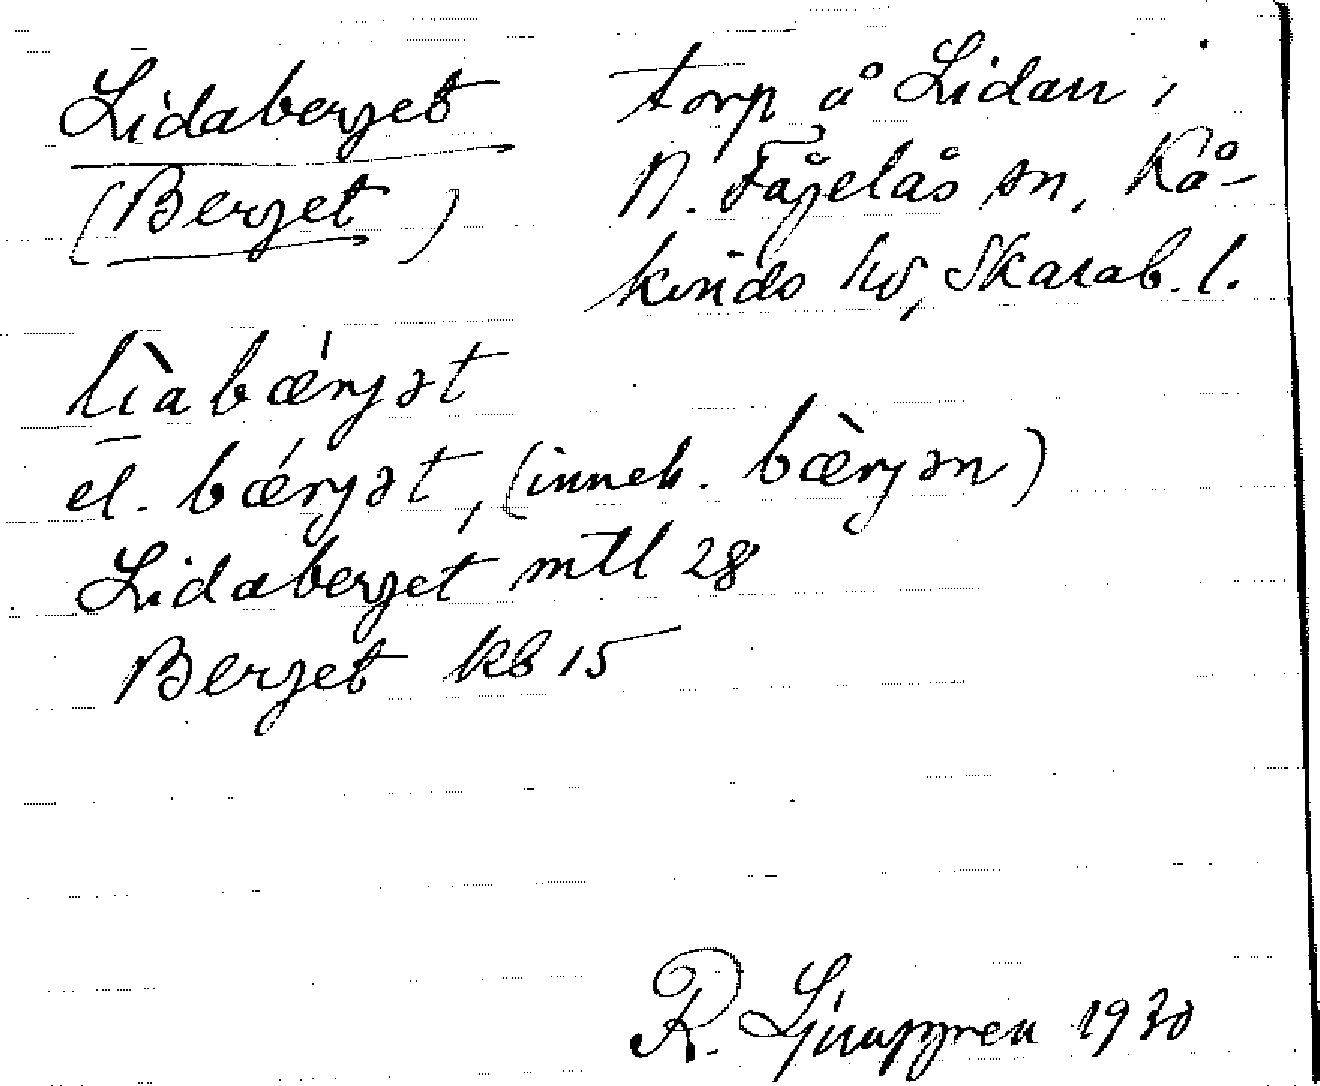 Lidaberget torp å Lidan i
(Berget) N. Fågelås sn, Kå-
kinds hd, Skarab. l.
lìabǽrjət
el. bǽrjət, (inneb. bæ̀rjən)
Lidaberget mtl 28
Berget kb 15
R. Ljunggren 1930